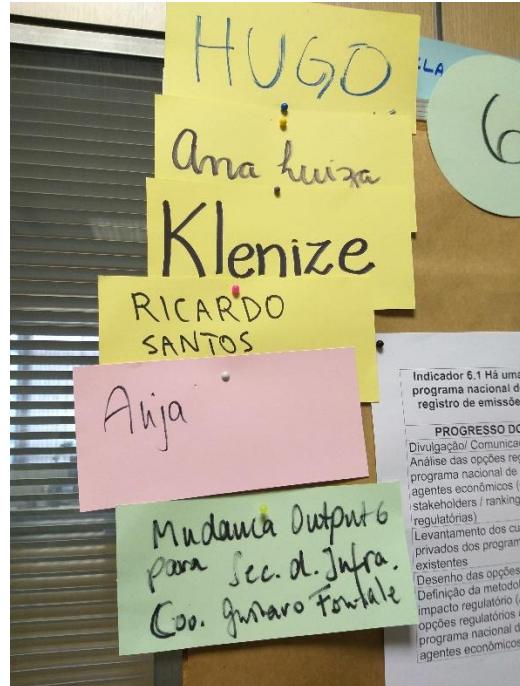 HUGO
LA
6
Ana Luiza
Klenize
RICARDO
SANTOS
Anja
Mudança Output 6
para Sec. d. Infra.
Coo. Gustavo
Indicador 6.1 Há uma
programa nacional d
registro de emissõe
PROGRESSO DO
Divulgação/ Comunica
Análise das opções reg
programa nacional de
agentes econômicos (
stakeholders / ranking
regulatórias)
Levantamento dos cu
privados dos program
existentes
Desenho das opções
Definição da metodo
impacto regulatório (
opções regulatórias
programa nacional d
agentes econômicos